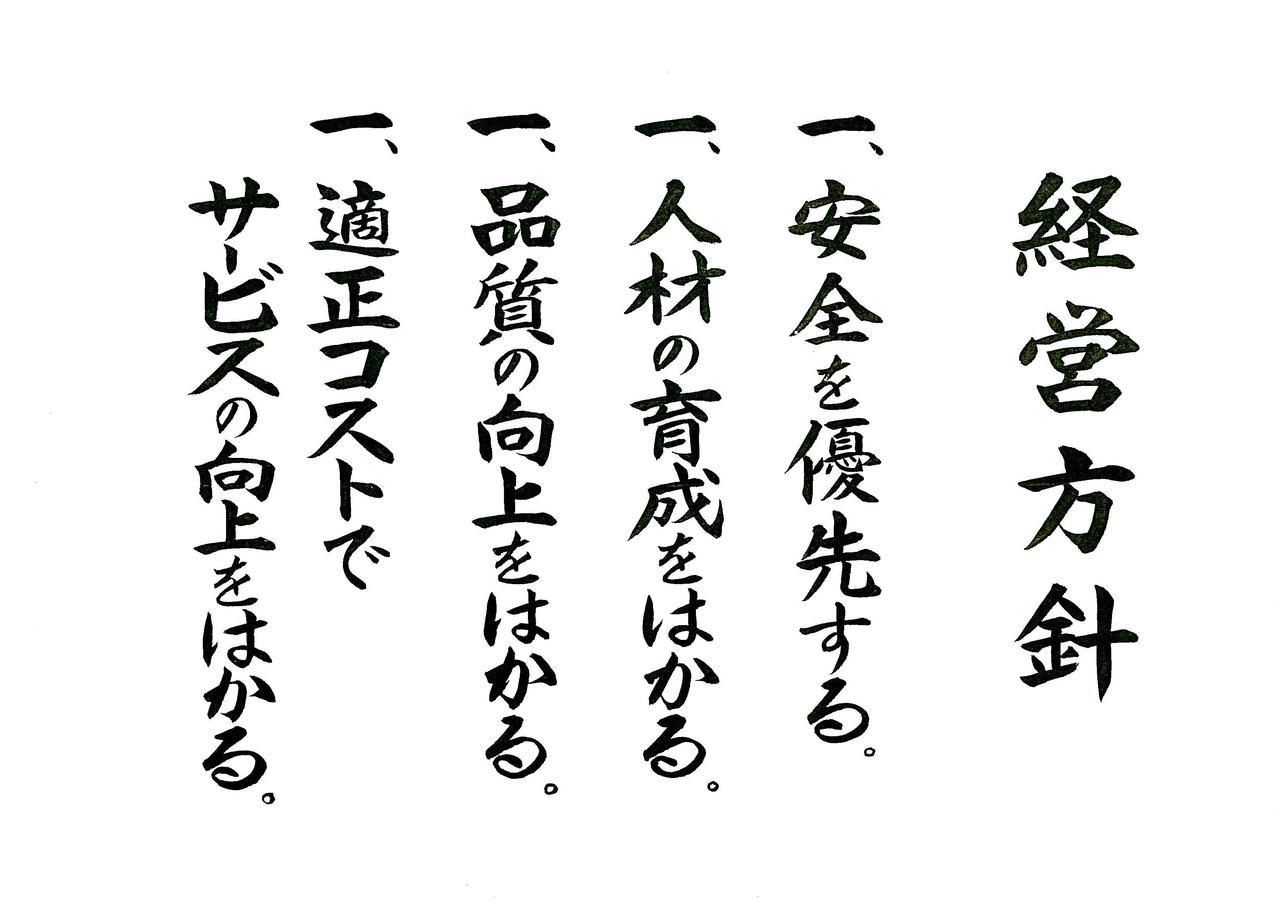 経営方針
一、安全を優先する。
一、人材の育成をはかる。
一、品質の向上をはかる。
一、適正コストで
サービスの向上をはかる。